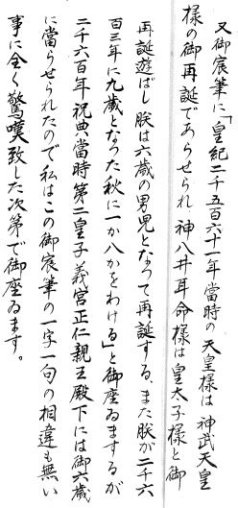 又御宸筆に「皇紀二千五百六十一年當時の天皇様は神武天皇
様の御再誕であらせられ、神八井耳命様は皇太子様と御
再誕遊ばし朕は六歳の男児となつて再誕する、また朕が二千六
百三年に九歳となつた秋に一か八かをわける」と御座ゐますが
二千六百年祝典當時第二皇子義宮正仁親王殿下には御六歳
に當らせられたので私はこの御宸筆の一字一句の相違も無い
事に全く驚嘆致した次第で御座ゐます。